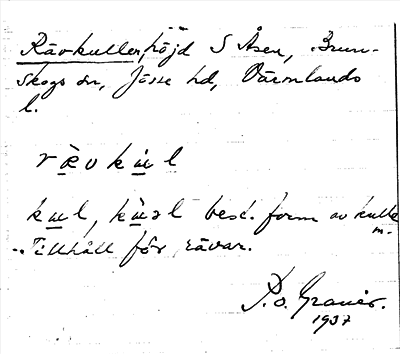 Rävkullen, höjd S Åsen, Brun-
skogs sn, Jösse hd, Värmlands
l.
r æ̀ v k ù l
k u l, k ù ə l best. form av kulle
m.
-. Tillhåll för rävar.
P. o. Graner.
1937